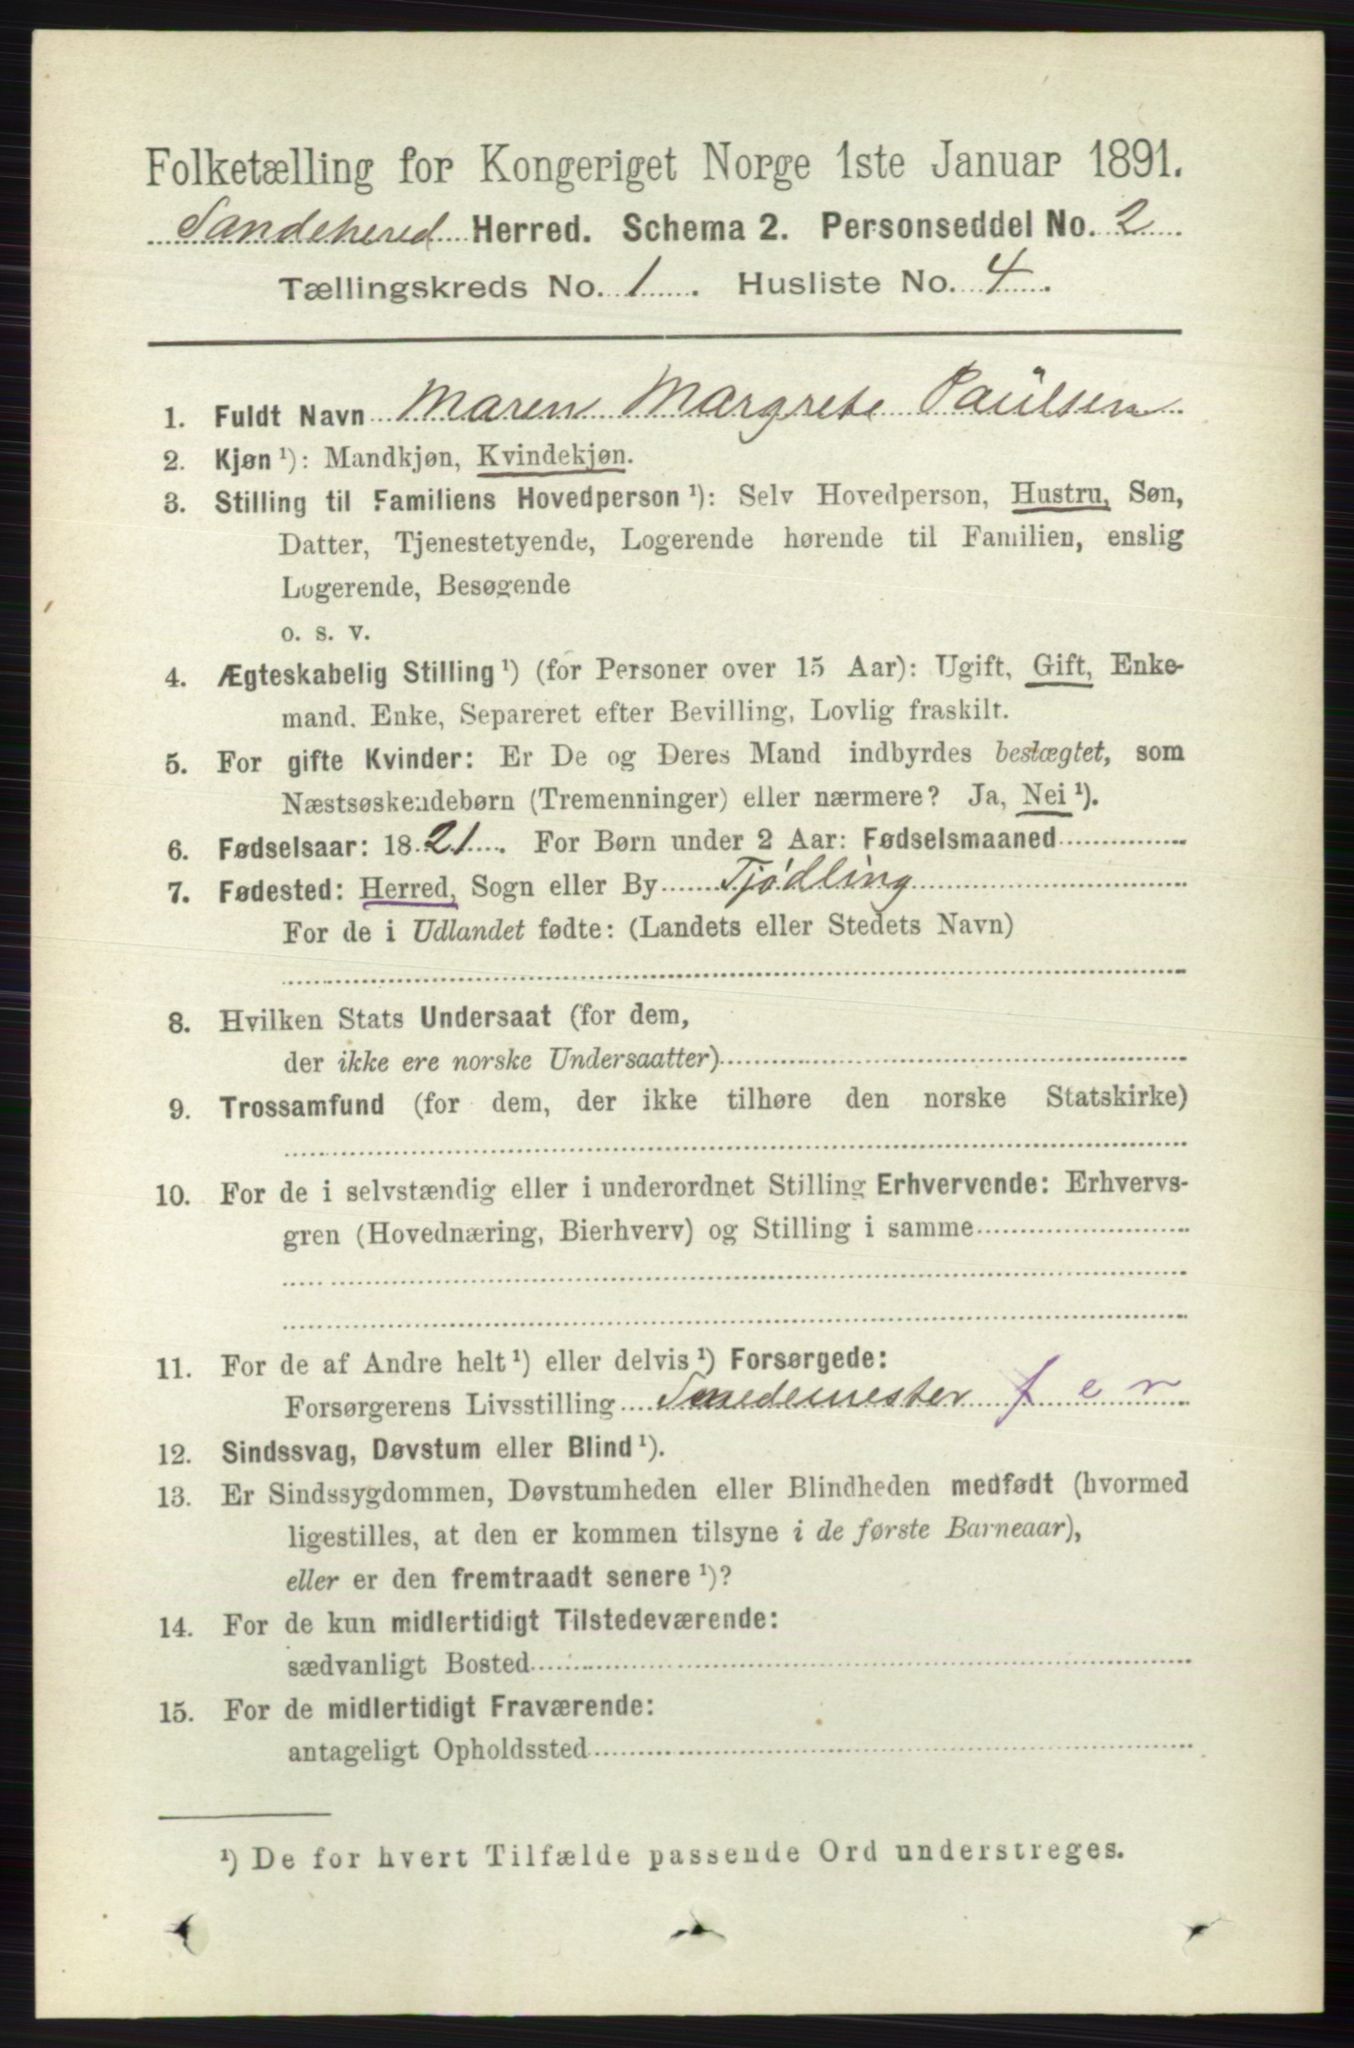 Folketælling for Kongeriget Norge 1ste Januar 1891.
Sandehered Herred. Schema 2. Personseddel No. 2
Tællingskreds No. 1. Husliste No. 4.
1. Fuldt Navn Maren Margrete Paulsen
2. Kjøn ¹): Mandkjøn, Kvindekjøn.
3. Stilling til Familiens Hovedperson ¹): Selv Hovedperson, Hustru, Søn,
Datter, Tjenestetyende, Logerende hørende til Familien, enslig
Logerende, Besøgende
o. s. v.
4. Ægteskabelig Stilling ¹) (for Personer over 15 Aar): Ugift, Gift, Enke-
mand, Enke, Separeret efter Bevilling, Lovlig fraskilt.
5. For gifte Kvinder: Er De og Deres Mand indbyrdes beslægtet, som
Næstsøskendebørn (Tremenninger) eller nærmere? Ja, Nei ¹).
6. Fødselsaar: 1821. For Børn under 2 Aar: Fødselsmaaned
7. Fødested: Herred, Sogn eller By Tjødling
For de i Udlandet fødte: (Landets eller Stedets Navn)
8. Hvilken Stats Undersaat (for dem,
der ikke ere norske Undersaatter)
9. Trossamfund (for dem, der ikke tilhøre den norske Statskirke)
10. For de i selvstændig eller i underordnet Stilling Erhvervende: Erhvervs-
gren (Hovednæring, Bierhverv) og Stilling i samme
11. For de af Andre helt ¹) eller delvis ¹) Forsørgede:
Forsørgerens Livsstilling Smedemester f e r
12. Sindssvag, Døvstum eller Blind ¹).
13. Er Sindssygdommen, Døvstumheden eller Blindheden medfødt (hvormed
ligestilles, at den er kommen tilsyne i de første Barneaar),
eller er den fremtraadt senere ¹)?
14. For de kun midlertidigt Tilstedeværende:
sædvanligt Bosted
15. For de midlertidigt Fraværende:
antageligt Opholdssted
¹) De for hvert Tilfælde passende Ord understreges.